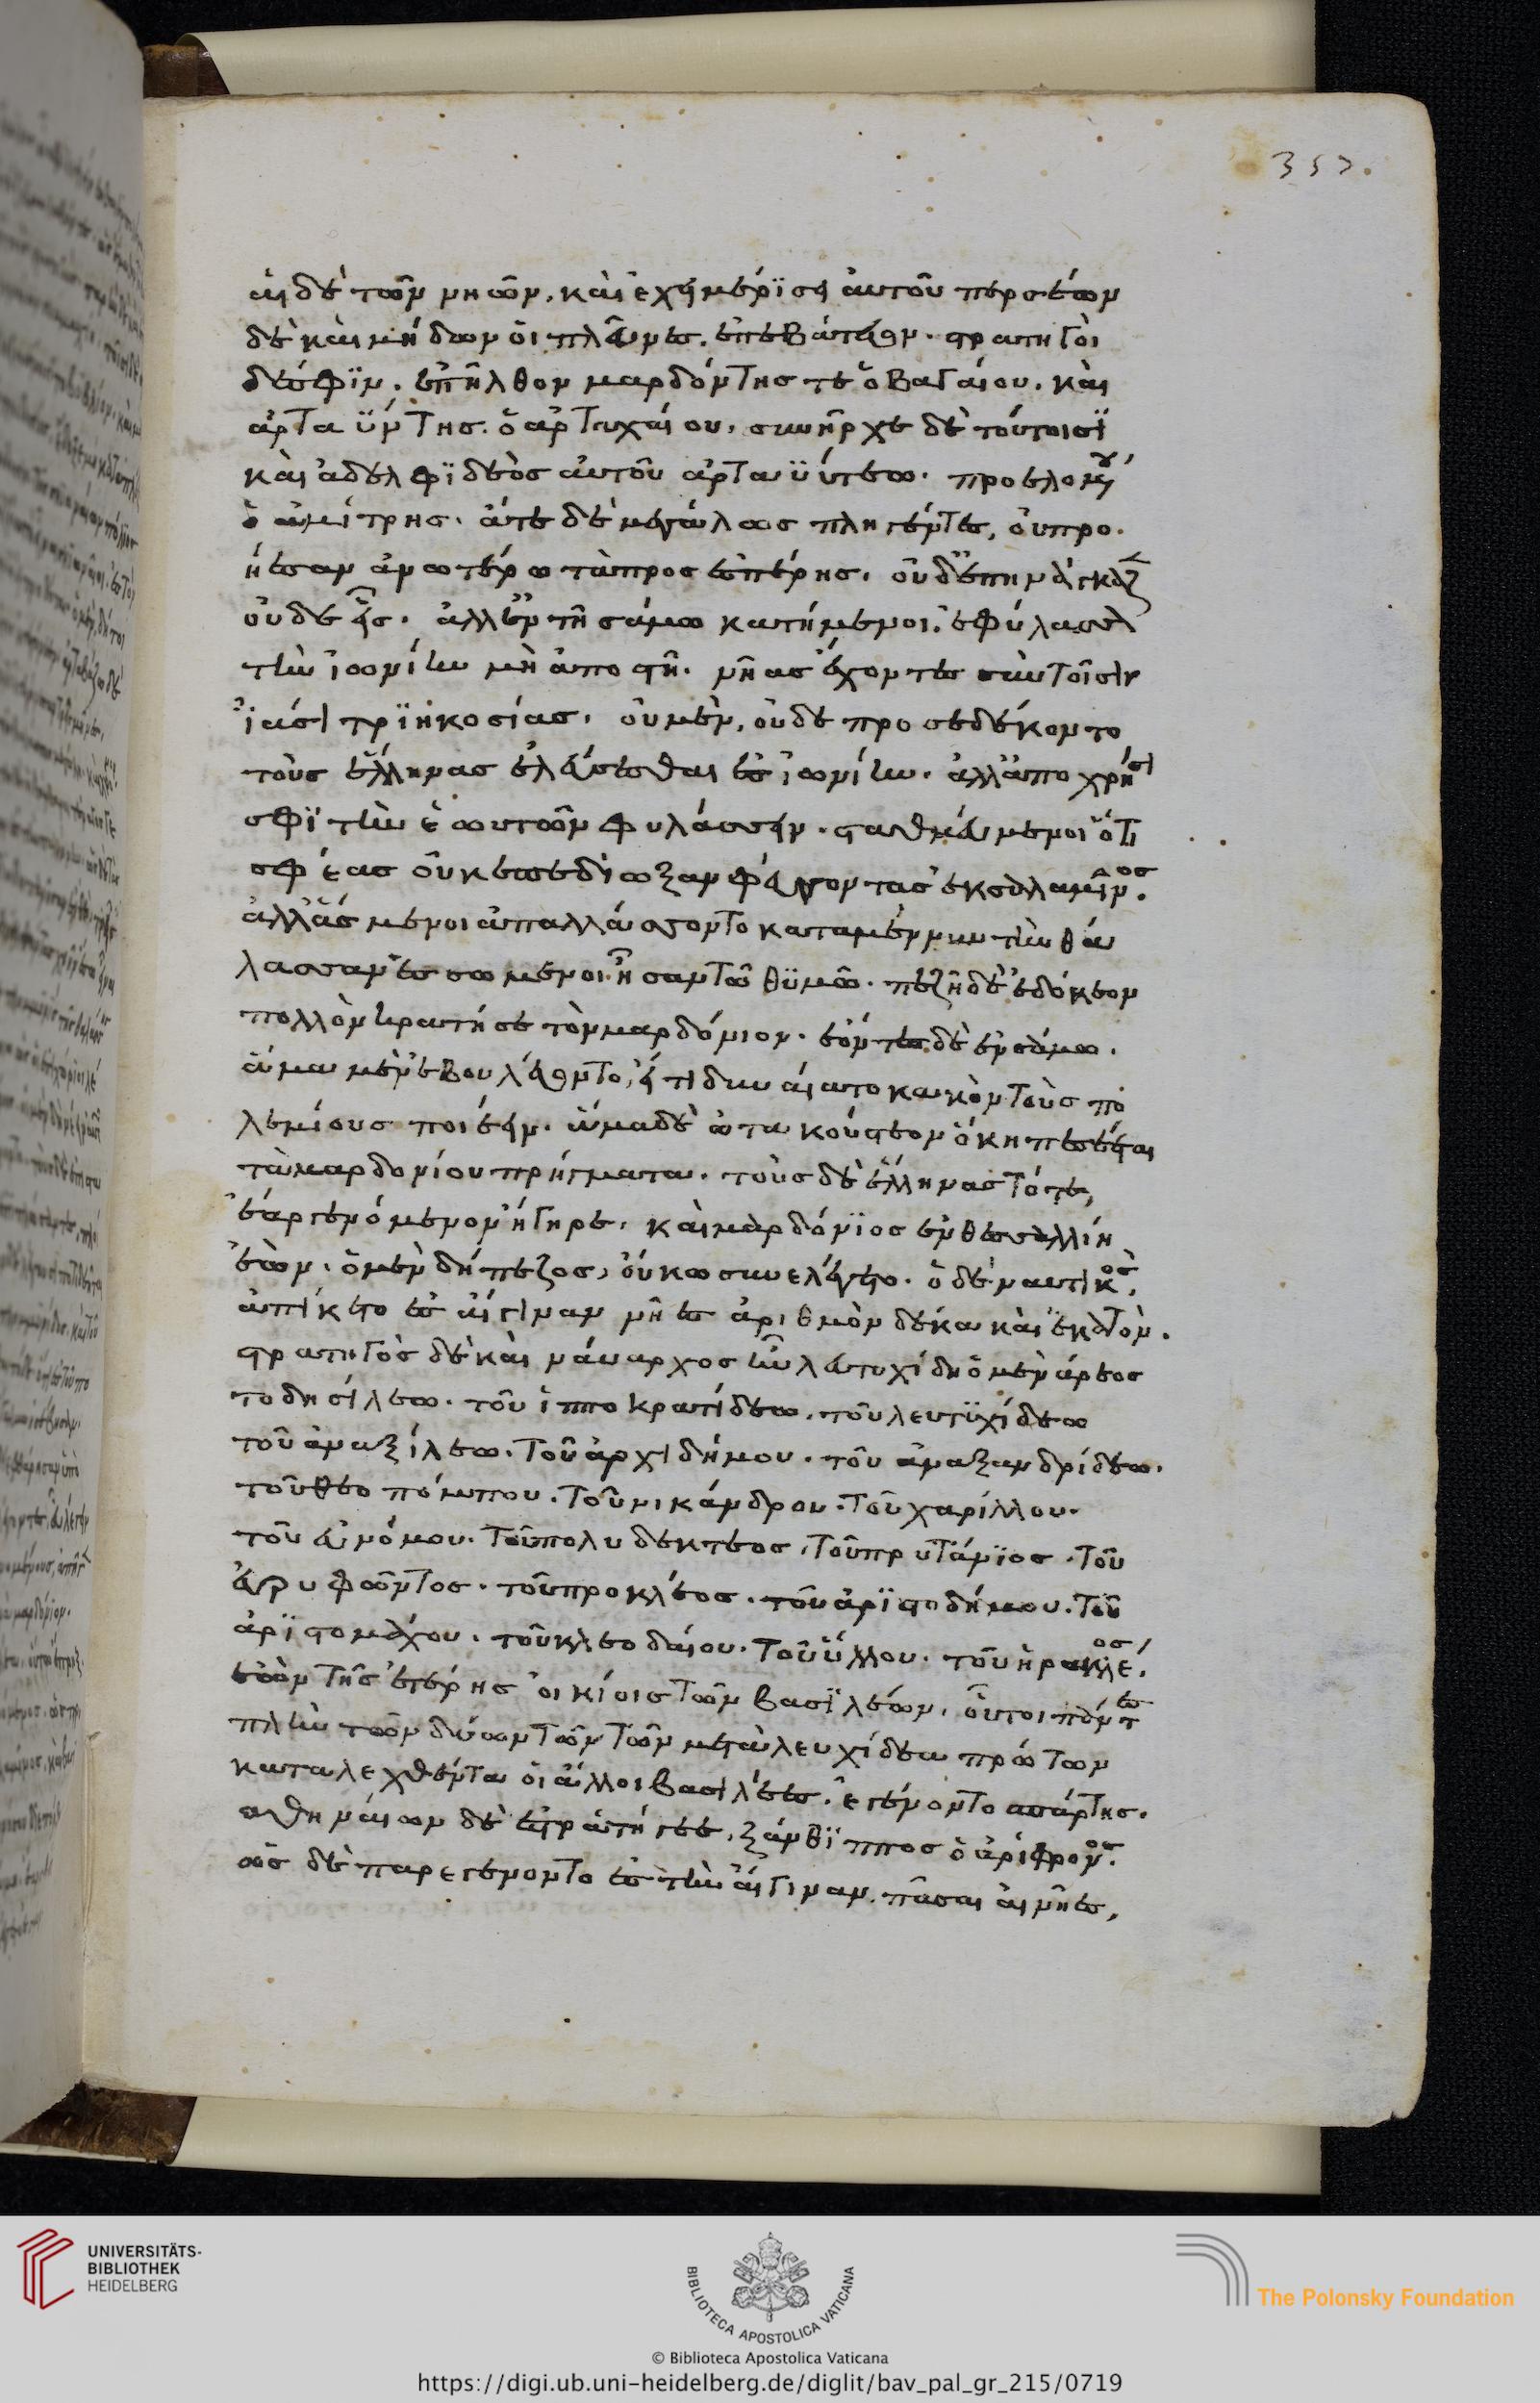 357.
αἱ δὲ τῶν νηῶν. καὶ ἐχειμέρϊσει αὐτοῦ περσέων
δὲ καὶ μήδων ὁι πλεῦνες. ἐπεβάτευον. στρατηγὸι
δέ σφϊν. ἐπῆλθον μαρδόντης τε ὁ βαγαίου. καὶ
ἀρταΰντης ὁ ἀρταχαίου. συνῆρχε δὲ τούτοισϊ
καὶ ἀδελφϊδεὸς αὐτοῦ ἀρταϋντεω. προελομένου
ὁ ἀμίτρης. ἅτε δὲ μεγάλως πληγέντες, οὐ προ.
ήεσαν ἀνωτέρω τὰ πρὸς ἑσπέρης. οὐδ' ἐπηνάγκαζε
οὐδεείς. ἀλλ' ἐν τῆ σάμω κατήμενοι. ἐφύλασσον
τὴν ἰωνίην μὴ ἀποστῆ. νῆας ἔχοντες σὺν τοῖσιν
ἰάσι τριηκοσίας. οὐ μὲν, οὐδὲ προσεδέκοντο
τοὺς ἕλληνας ἐλεύσεσθαι ἐς ἰωνίην. ἀλλ' ἀποχρήσει
σφϊ τὴν ἑωυτῶν φυλάσσειν. σταθμεύμενοι ὅτι
σφέας οὐκ ἐπεδίωξαν φεύγοντας ἐκ σαλαμῖνος.
ἀλλ' ἄσμενοι ἀπαλλάσσοντο κατὰ μέν νυν τὴν θά
λασσαν ἑσσωμένοι ἦσαν τῶ θϋμῶ. πεζῆ δὲ ἐδόκεον
πολλὸν κρατήσε τὸν μαρδόνιον. ἐόντες δὲ ἐν σάμω.
ἅμα μὲν ἐβουλεύοντο, εἴ τι δυναίατο κακὸν τοὺς πο
λεμίους ποιέειν. ἅμα δὲ ὠτακούστεον ὅκη πεσέεται
τὰ μαρδονίου πρήγματα. τοὺς δὲ ἕλληνας τότε,
ἔαρ γενόμενον ἤγηρε. καὶ μαρδόνϊος ἐν θεσσαλίη
ἐὼν. ὁ μὲν δὴ πεζος, οὔκω συνελέγετο. ὁ δὲ ναυτικὸς,
ἀπίκετο ἐς αἴγιναν νῆες ἀριθμὸν δέκα καὶ ἑκατόν.
στρατηγὸς δὲ καὶ ναύαρχος ἦν λευτυχίδη ὁ μεν άρεος
τοδησίλεω. τοῦ ἱπποκρατίδεω. τοῦ λευτϋχίδεω
τοῦ ἀναξίλεω. τοῦ ἀρχιδήμου. τοῦ ἀναξανδρίδεω.
τοῦ θεοπόμπου. τοῦ νικάνδρου. τοῦ χαρίλλου.
τοῦ εὐνόμου. τοῦ πολυδέκτεος. τοῦ πρυτάνϊος. τοῦ
εὐρυφῶντος. τοῦ προκλέος. τοῦ ἀρϊστοδήμου. τοῦ
ἀρϊστομάχου. τοῦ κλεοδαίου. τοῦ ὕλλου. τοῦ ἡρακλέος.
ἐὼν τῆς ἑτέρης οἰκίοις τῶν βασϊλέων. οὗτοι πάντες
πλὴν τῶν δύων τῶν τῶν μετὰ λευχίδεα πρώτων
καταλεχθέντα ὁι ἄλλοι βασιλέες. ἐγένοντο σπάρτης.
αθηναίων δὲ ἐστρατήγεε. ξάνθϊππος ὁ ἀρίφρονος.
ὡς δὲ παρεγένοντο ἐς τὴν αἴγιναν. πᾶσαι ἁι νῆες,
UNIVERSITÄTS-
BIBLIOTHEK
HEIDELBERG
BIBLIOTECA APOSTOLICA VATICANA
The Polonsky Foundation
© Biblioteca Apostolica Vaticana
https://digi.ub.uni-heidelberg.de/diglit/bav_pal_gr_215/0719